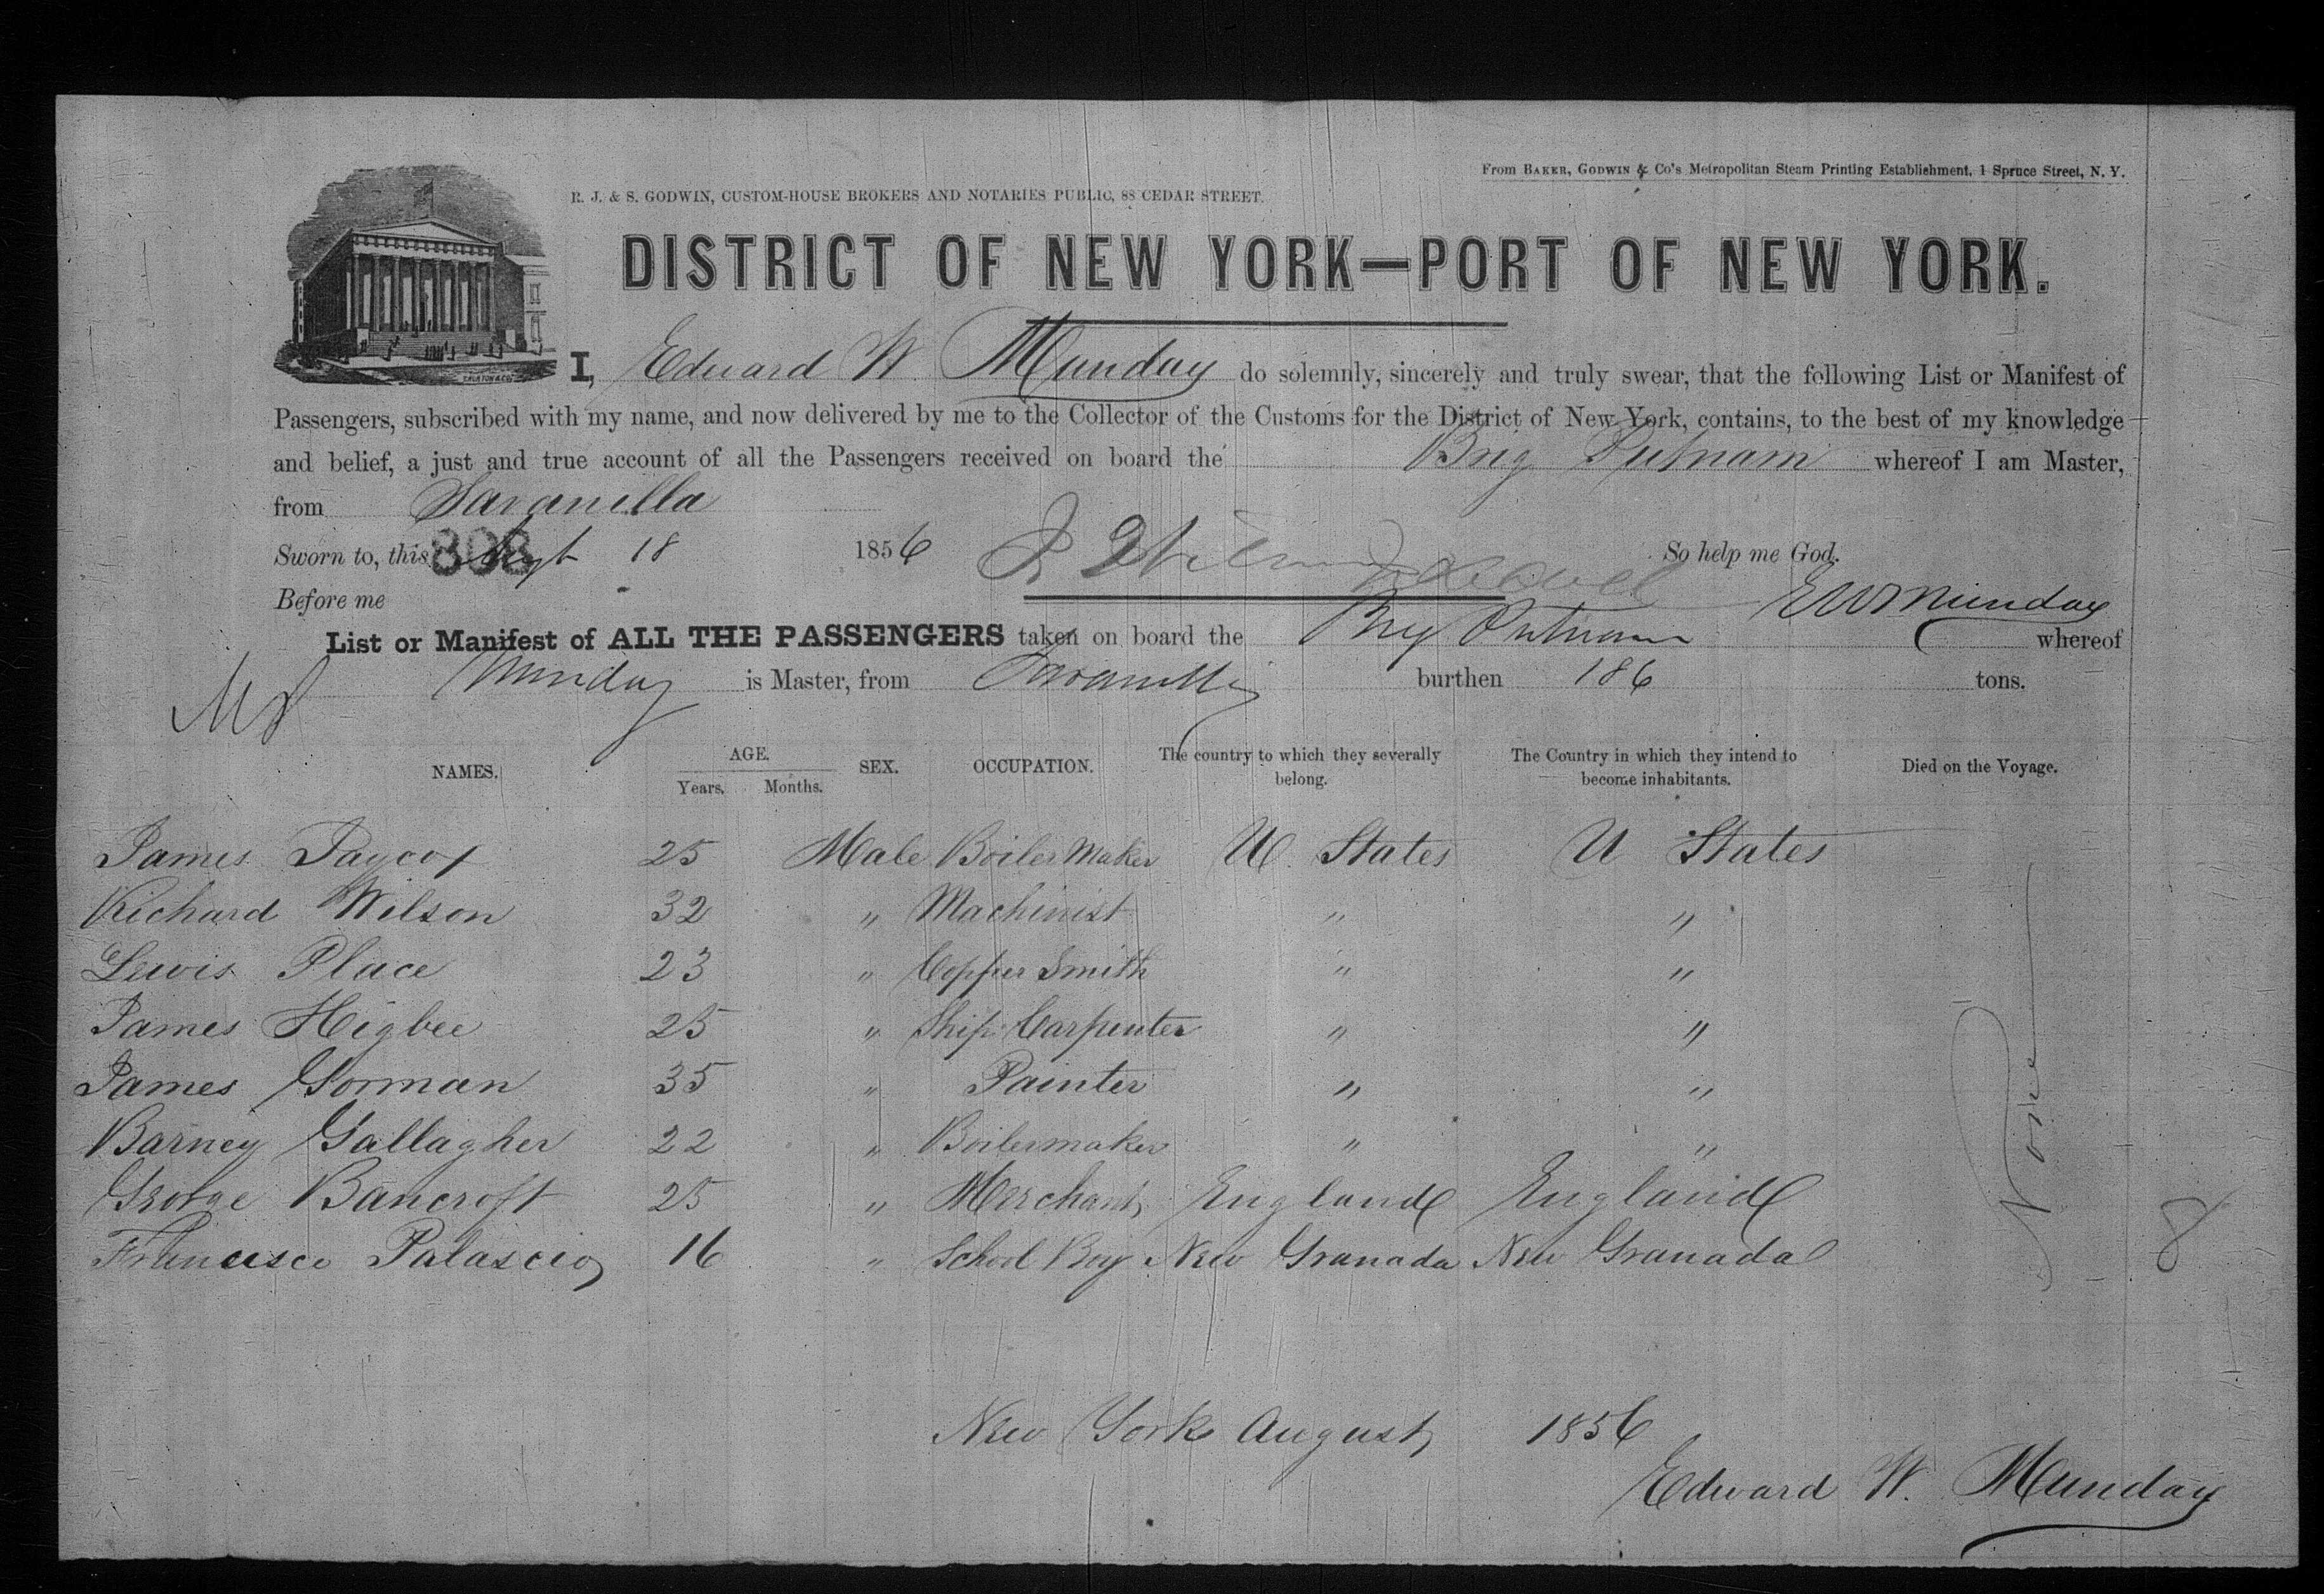 From BAKER, GODWIN & Co's Metropolitan Steam Printing Establishment, 1 Spruce Street, N. Y.
R. J. & S. GODWIN, CUSTOM-HOUSE BROKERS AND NOTARIES PUBLIC, 88 CEDAR STREET.
DISTRICT OF NEW YORK—PORT OF NEW YORK.
I, Edward W. Munday do solemnly, sincerely and truly swear, that the following List or Manifest of
Passengers, subscribed with my name, and now delivered by me to the Collector of the Customs for the District of New York, contains, to the best of my knowledge
and belief, a just and true account of all the Passengers received on board the Brig Putnam whereof I am Master,
from Savanilla
Sworn to, this 808 Sept 18 1856 So help me God.
Before me E W Munday
List or Manifest of ALL THE PASSENGERS taken on board the Brig Putnam whereof
Munday is Master, from Savanilla burthen 186 tons.
NAMES. AGE. Years. Months. SEX. OCCUPATION. The country to which they severally belong. The Country in which they intend to become inhabitants. Died on the Voyage.
James Jaycox 25 Male Boiler Maker U. States U States
Richard Wilson 32 " Machinist " "
Lewis Place 23 " Copper Smith " "
James Higbee 25 " Ship Carpenter " "
James Gorman 35 " Painter " "
Barney Gallagher 22 " Boilermaker " "
George Bancroft 25 " Merchant England England
Francisco Palascio 16 " School Boy New Granada New Granada
None
8
New York August 1856
Edward W. Munday